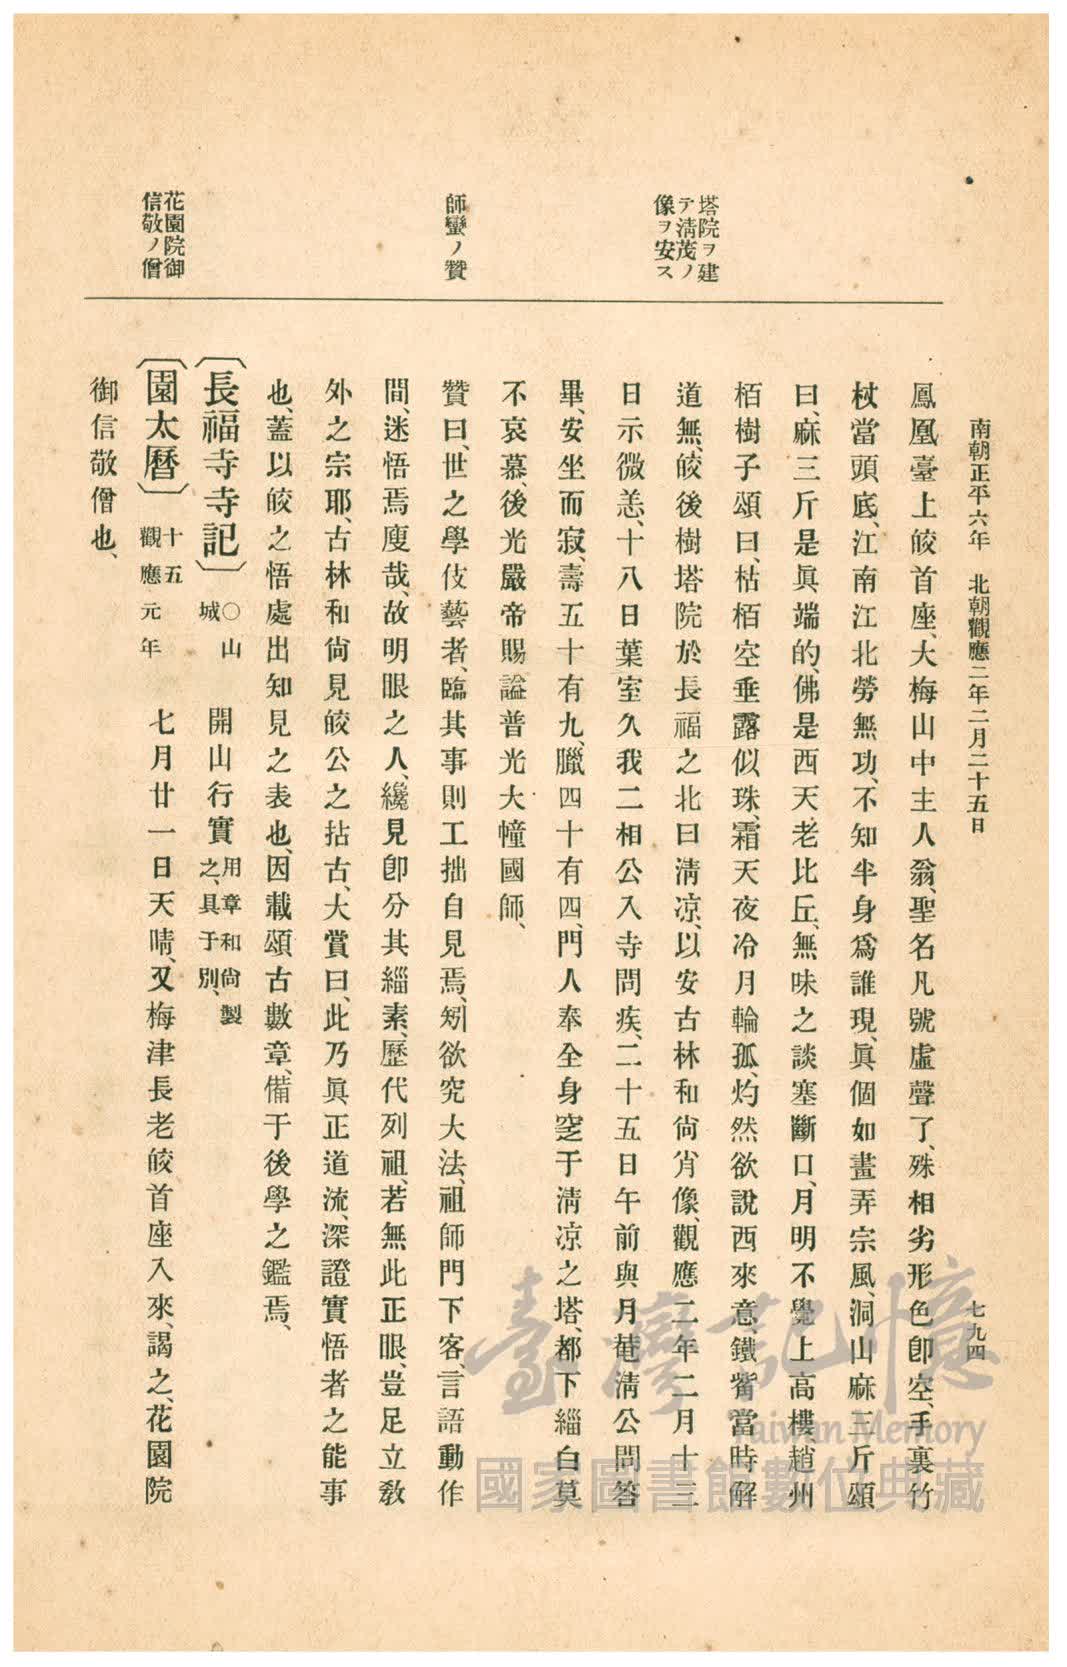 南朝正平六年　北朝觀應二年二月二十五日
七九四
塔院ヲ建
テ淸茂ノ
像ヲ安ス
師蠻ノ贊
花園院御
信敬ノ僧
鳳凰臺上皎首座、大梅山中主人翁、聖名凡號虛聲了、殊相劣形色卽空、手裏竹
杖當頭底、江南江北勞無功、不知半身爲誰現、眞個如畫弄宗風、洞山麻三斤頌
曰、麻三斤是眞端的、佛是西天老比丘、無味之談塞斷口、月明不覺上高樓、趙州
栢樹子頌曰、枯栢空垂露似珠、霜天夜冷月輪孤、灼然欲說西來意、鐵觜當時解
道無、皎後樹塔院於長福之北曰淸凉、以安古林和尙肖像、觀應二年二月十三
日示微恙、十八日葉室久我二相公入寺問疾、二十五日午前與月菴淸公問答
畢、安坐而寂、壽五十有九、臘四十有四、門人奉全身窆于淸凉之塔、都下緇白莫
不哀慕、後光嚴帝賜謚普光大幢國師、
贊曰、世之學伎藝者、臨其事則工拙自見焉、矧欲究大法、祖師門下客、言語動作
間、迷悟焉廋哉、故明眼之人、纔見卽分其緇素、歷代列祖、若無此正眼、豈足立敎
外之宗耶、古林和尙見皎公之拈古、大賞曰、此乃眞正道流、深證實悟者之能事
也、蓋以皎之悟處出知見之表也、因載頌古數章、備于後學之鑑焉、
〔長福寺寺記〕○山城　開山行實用章和尙製之、具于別、
〔園太曆〕十五觀應元年　七月廿一日天晴、又梅津長老皎首座入來、謁之、花園院
御信敬僧也、
臺灣記憶
Taiwan Memory
國家圖書館數位典藏